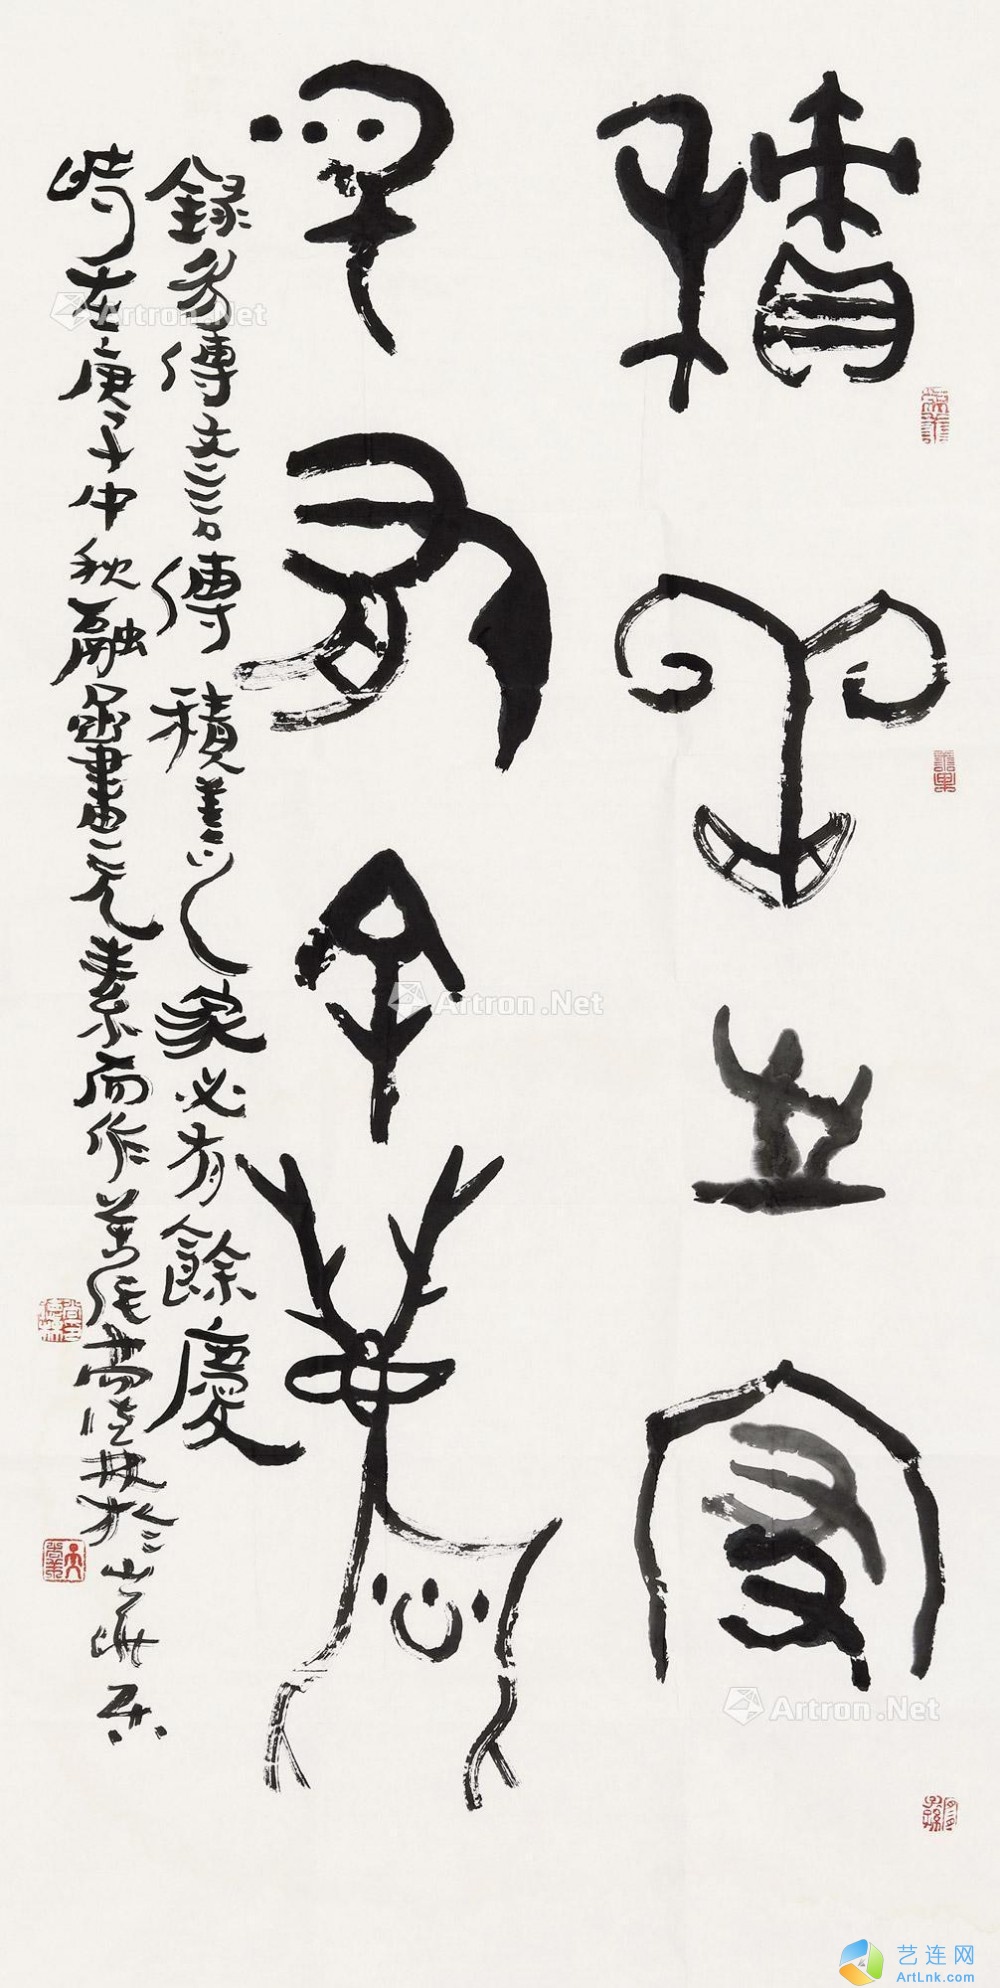 積善之家
必有余慶
錄易傳文言傳 積善之家必有餘慶
時在庚子中秋融畫之元素而作 於山
Artron.Net
Artron.Net
Artron.Net
艺连网
ArtLnk.com